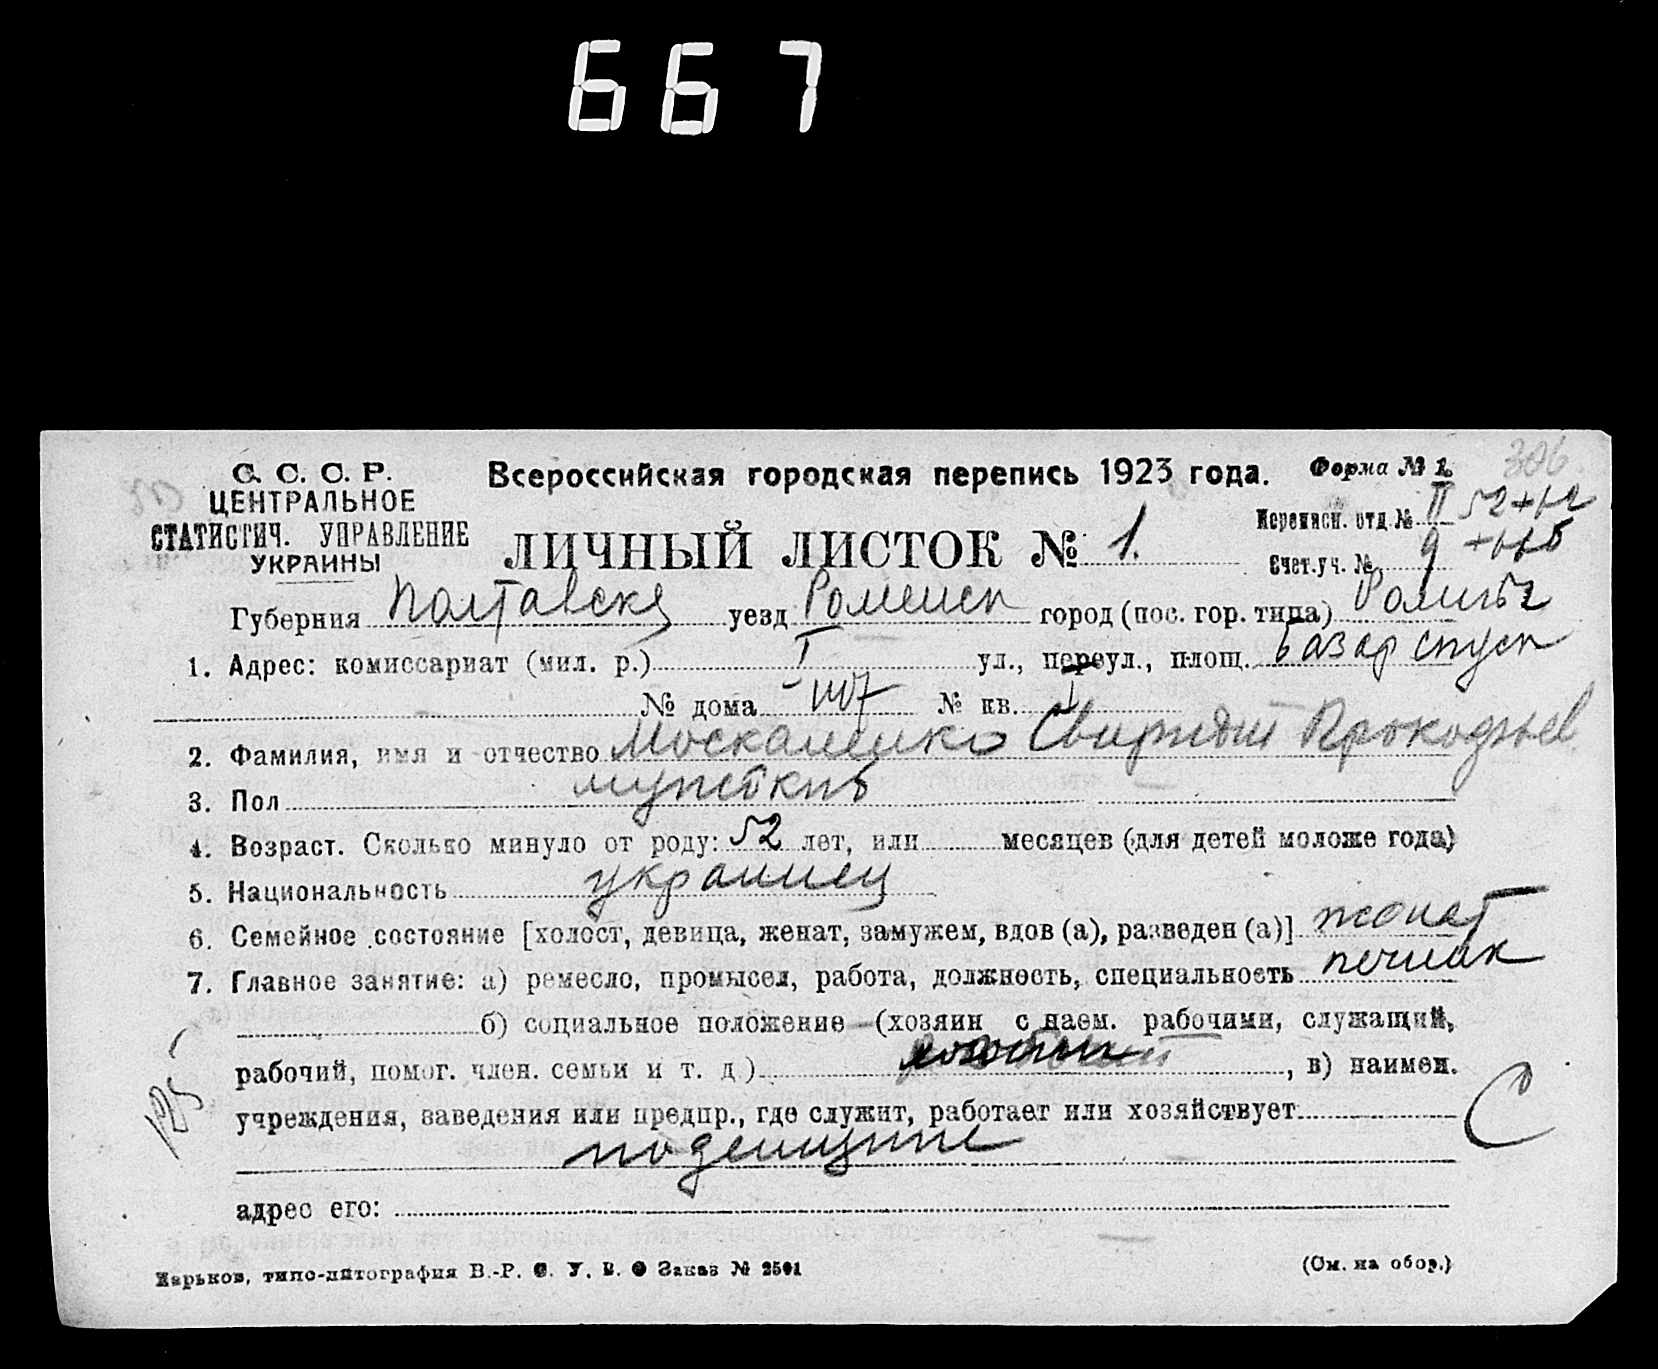 667
306
С. С. С. Р.
ЦЕНТРАЛЬНОЕ
СТАТИСТИЧ. УПРАВЛЕНИЕ
УКРАИНЫ
Всероссийская городская перепись 1923 года.
Форма № 1.
Переписн. отд. № II 52+
ЛИЧНЫЙ ЛИСТОК № 1.
Счет. уч. № 9
Губерния Полтавска уезд Роменск город (пос. гор. типа) Ромны
1. Адрес: комиссариат (мил. р.) I ул., переул., площ. Базар спуск
№ дома № кв. I
2. Фамилия, имя и отчество Москаленко Свиридон Прокофьев
3. Пол мужской
4. Возраст. Сколько минуло от роду: 52 лет, или месяцев (для детей моложе года)
5. Национальность украинец
6. Семейное состояние [холост, девица, женат, замужем, вдов (а), разведен (а)] женат
7. Главное занятие: а) ремесло, промысел, работа, должность, специальность печник
б) социальное положение — (хозяин с наем. рабочими, служащий,
рабочий, помог. член. семьи и т. д.) , в) наимен.
учреждения, заведения или предпр., где служит, работает или хозяйствует
поденщине
адрес его:
С
Харьков, типо-литография В.-Р. С. У. В. Заказ № 2501
(См. на обор.)